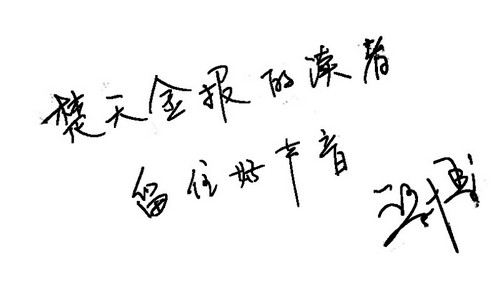 楚天金报的读者
留住好声音